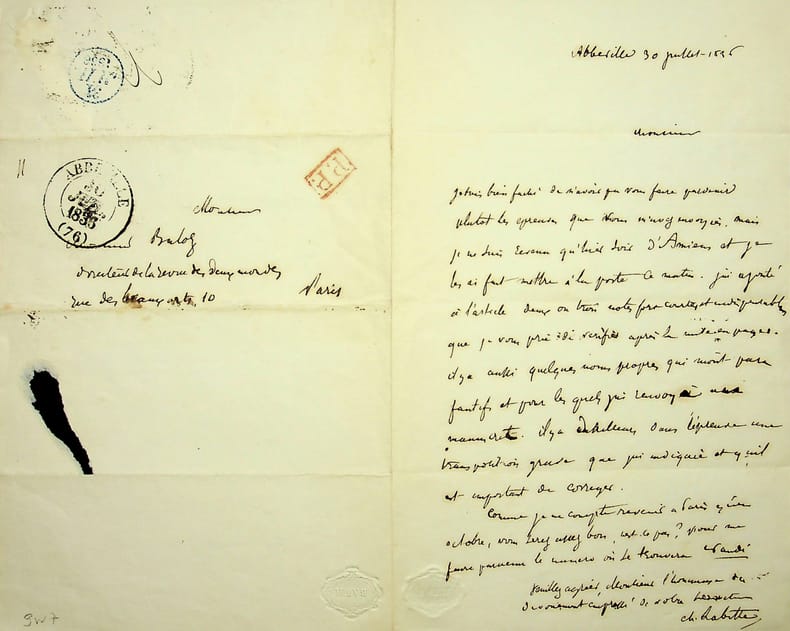 ABBEVILLE
30
JUIL
(76)
P.P.
Monsieur
Monsieur Buloz
directeur de la revue des deux mondes
rue des beaux arts, 10
Paris
9w7
Abbeville 30 juillet
Monsieur
Je suis bien faché de n'avoir pu vous faire parvenir
plutot les epreuves que vous m'avez envoyées, mais
je ne suis revenu qu'hier soir d'Amiens et je
les ai fait mettre à la poste ce matin. j'ai ajouté
à l'article deux ou trois notes fort courtes et indispensables
que je vous prie de verifier après la mise en pages.
il y a aussi quelques noms propres qui m'ont paru
fautifs et pour les quels j'ai renvoyé
manuscrit. il y a d'ailleurs dans l'épreuve une
transposition grave que j'ai indiquée et qu'il
est important de corriger.
Comme je ne compte revenir à Paris qu'en
octobre, vous serez assez bon, n'est-ce pas? pour me
faire parvenir le numero où se trouvera
Veuillez agréer, Monsieur l'hommage du
devouement empressé de votre serviteur
ch. Labitte